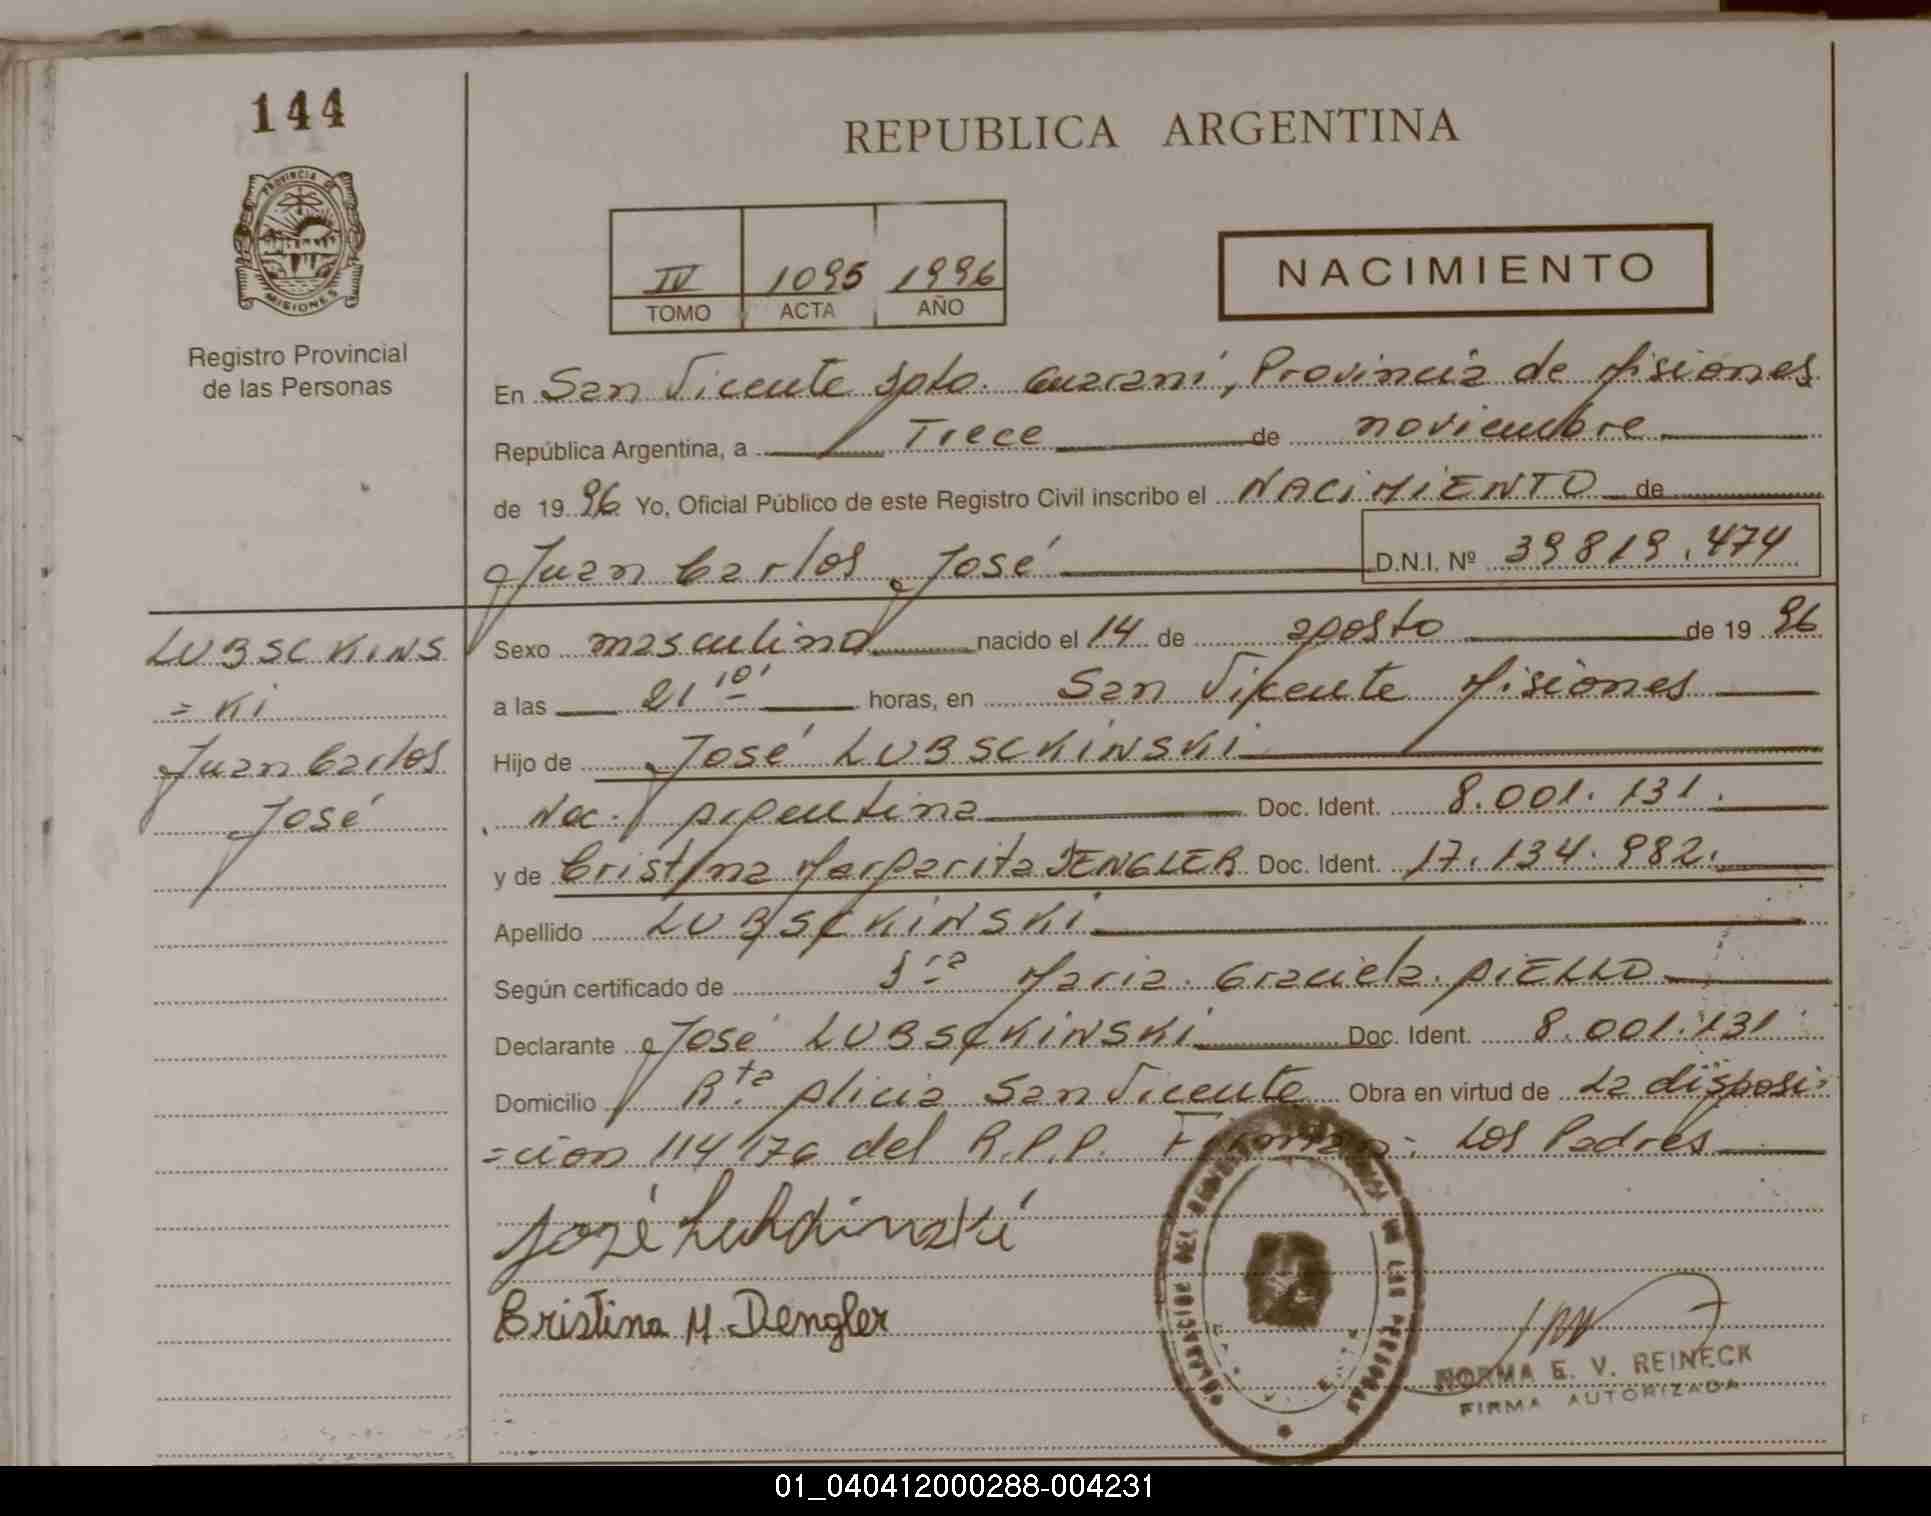 144
PROVINCIA DE
MISIONES
Registro Provincial
de las Personas
REPUBLICA ARGENTINA
IV 1095 1996
TOMO ACTA AÑO
NACIMIENTO
En San Vicente Dpto. Guarani, Provincia de Misiones
República Argentina, a Trece de noviembre
de 1996 Yo, Oficial Público de este Registro Civil inscribo el NACIMIENTO de
Juan Carlos José D.N.I. Nº 39819.474
LUBSCKINS
=Ki
Juan Carlos
José
Sexo masculino nacido el 14 de agosto de 1996
a las 21 10' horas, en San Vicente Misiones
Hijo de José LUBSCKINSKI
Nac. Argentina Doc. Ident. 8.001.131.
y de Cristina Margarita DENGLER Doc. Ident. 17.134.982.
Apellido LUBSCKINSKI
Según certificado de Dra Maria Graciela AIELLO
Declarante José LUBSCKINSKI Doc. Ident. 8.001.131
Domicilio Rta Alicia San Vicente Obra en virtud de La disposi=
=cion 114/76 del R.P.P. Firman: Los Padres
José
Cristina M. Dengler
DEL LAS PERSONAS
NORMA E. V. REINECK
FIRMA AUTORIZADA
01_040412000288-004231